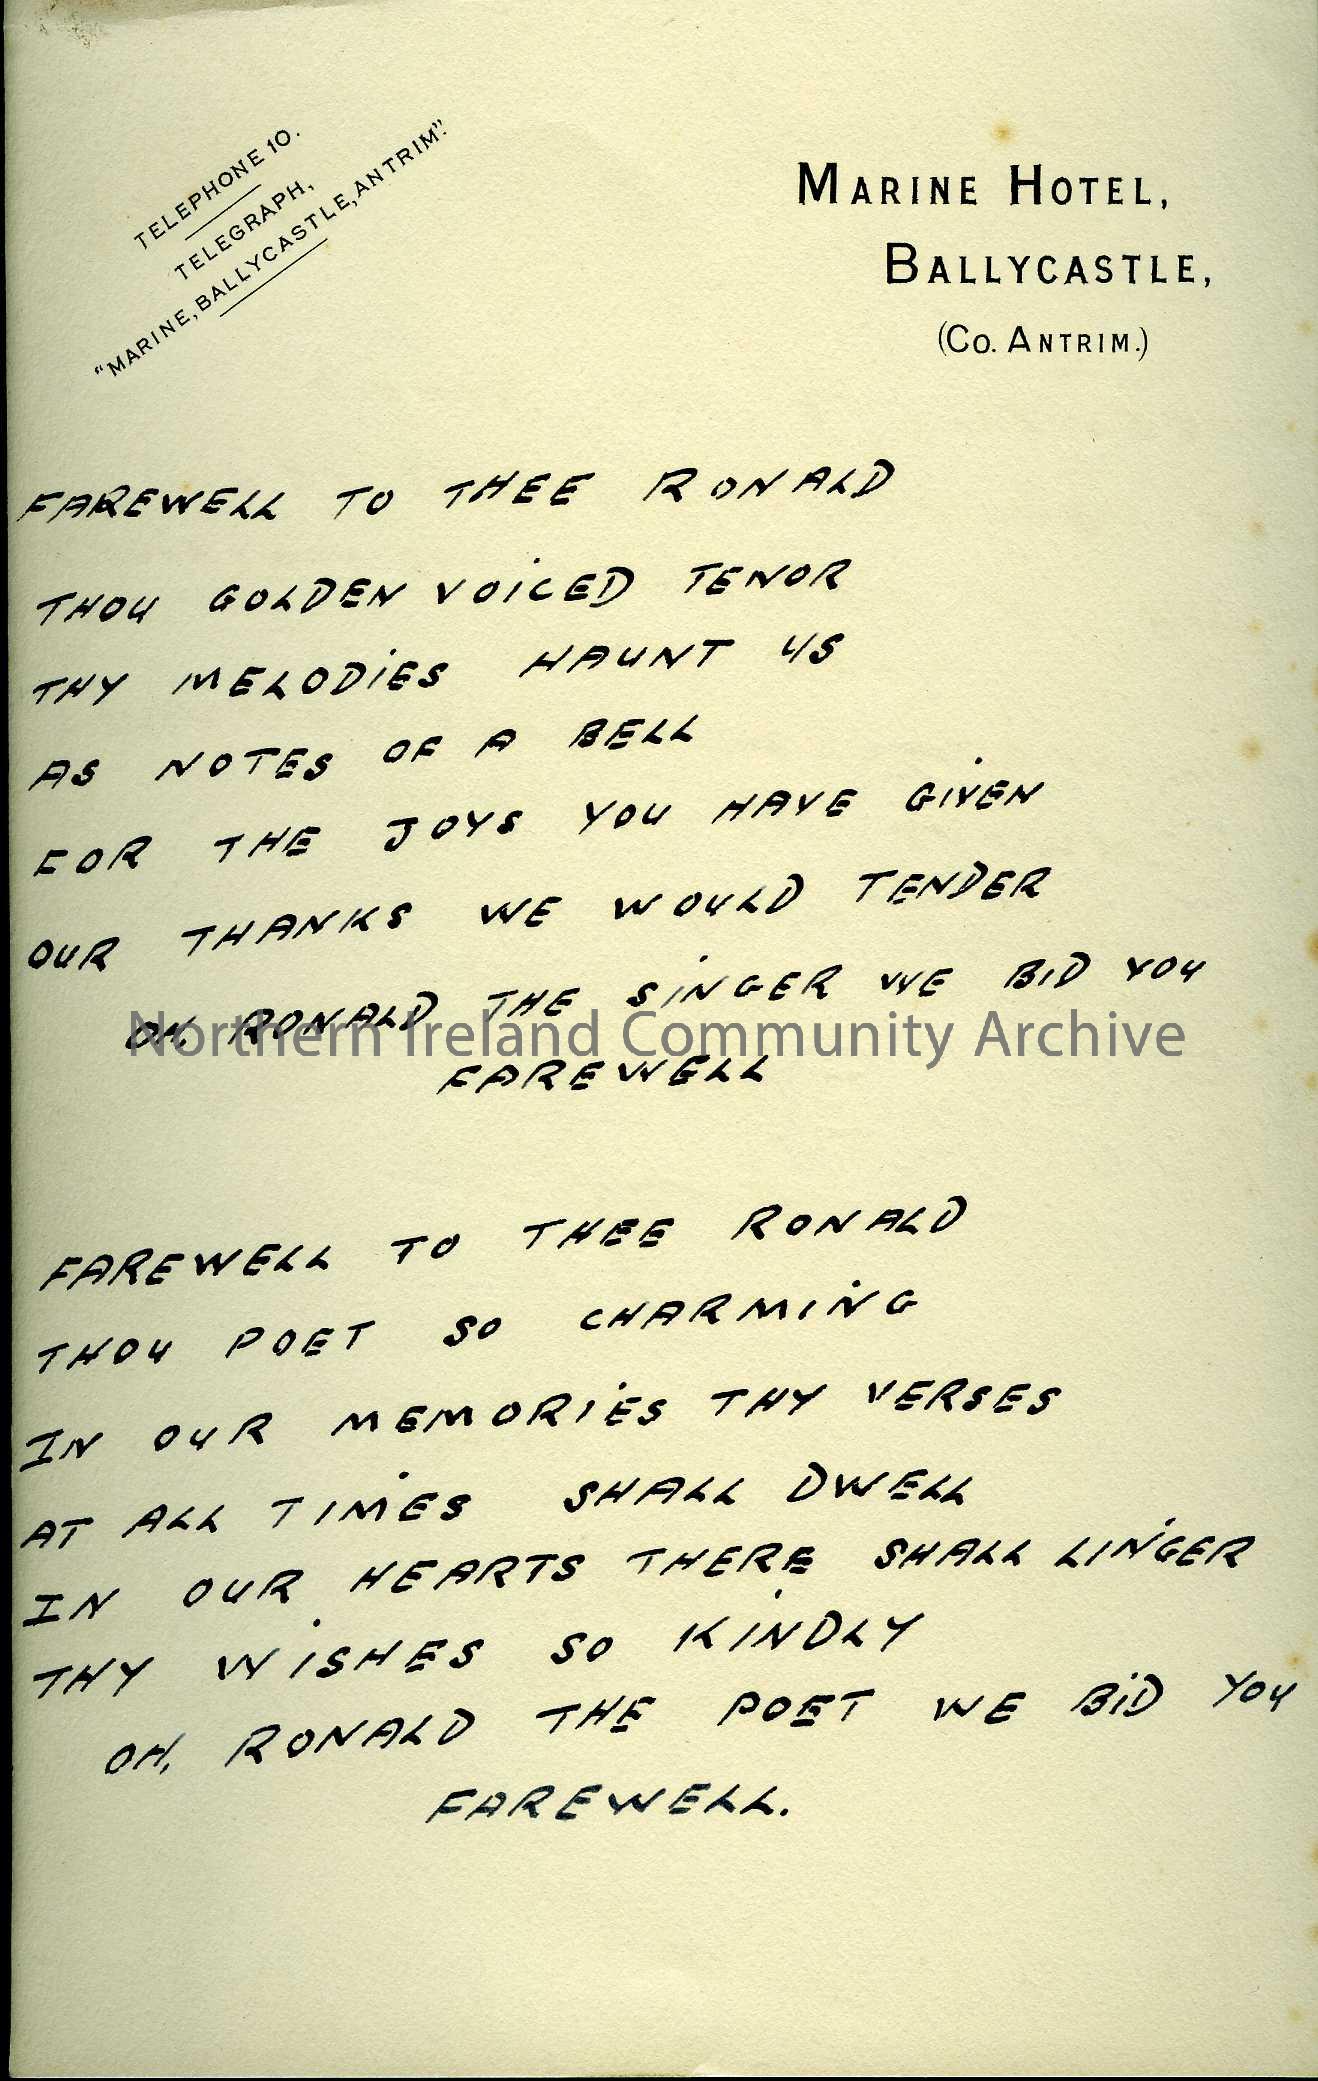 TELEPHONE 10.
TELEGRAPH,
"MARINE, BALLYCASTLE, ANTRIM".
MARINE HOTEL,
BALLYCASTLE,
(CO. ANTRIM.)
FAREWELL TO THEE RONALD
THOU GOLDEN VOICED TENOR
THY MELODIES HAUNT US
AS NOTES OF A BELL
FOR THE JOYS YOU HAVE GIVEN
OUR THANKS WE WOULD TENDER
OH, RONALD THE SINGER WE BID YOU
Northern Ireland Community Archive
FAREWELL
FAREWELL TO THEE RONALD
THOU POET SO CHARMING
IN OUR MEMORIES THY VERSES
AT ALL TIMES SHALL DWELL
IN OUR HEARTS THERE SHALL LINGER
THY WISHES SO KINDLY
OH, RONALD THE POET WE BID YOU
FAREWELL.